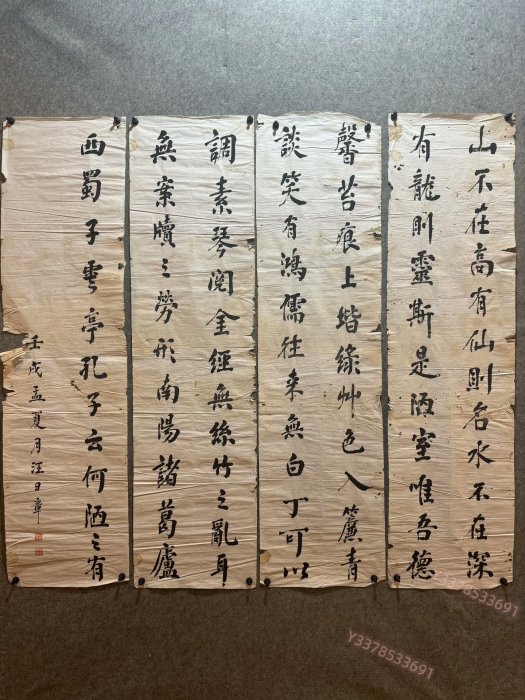 山不在高有仙則名水不在深
有龍則靈斯是陋室唯吾德
馨苔痕上堦綠艸色入簾青
談笑有鴻儒往来無白丁可以
調素琴閱金經無絲竹之亂耳
無案牘之勞形南陽諸葛廬
西蜀子雲亭孔子云何陋之有
壬戌孟夏月汪日章
Y3378533691
Y3378533691